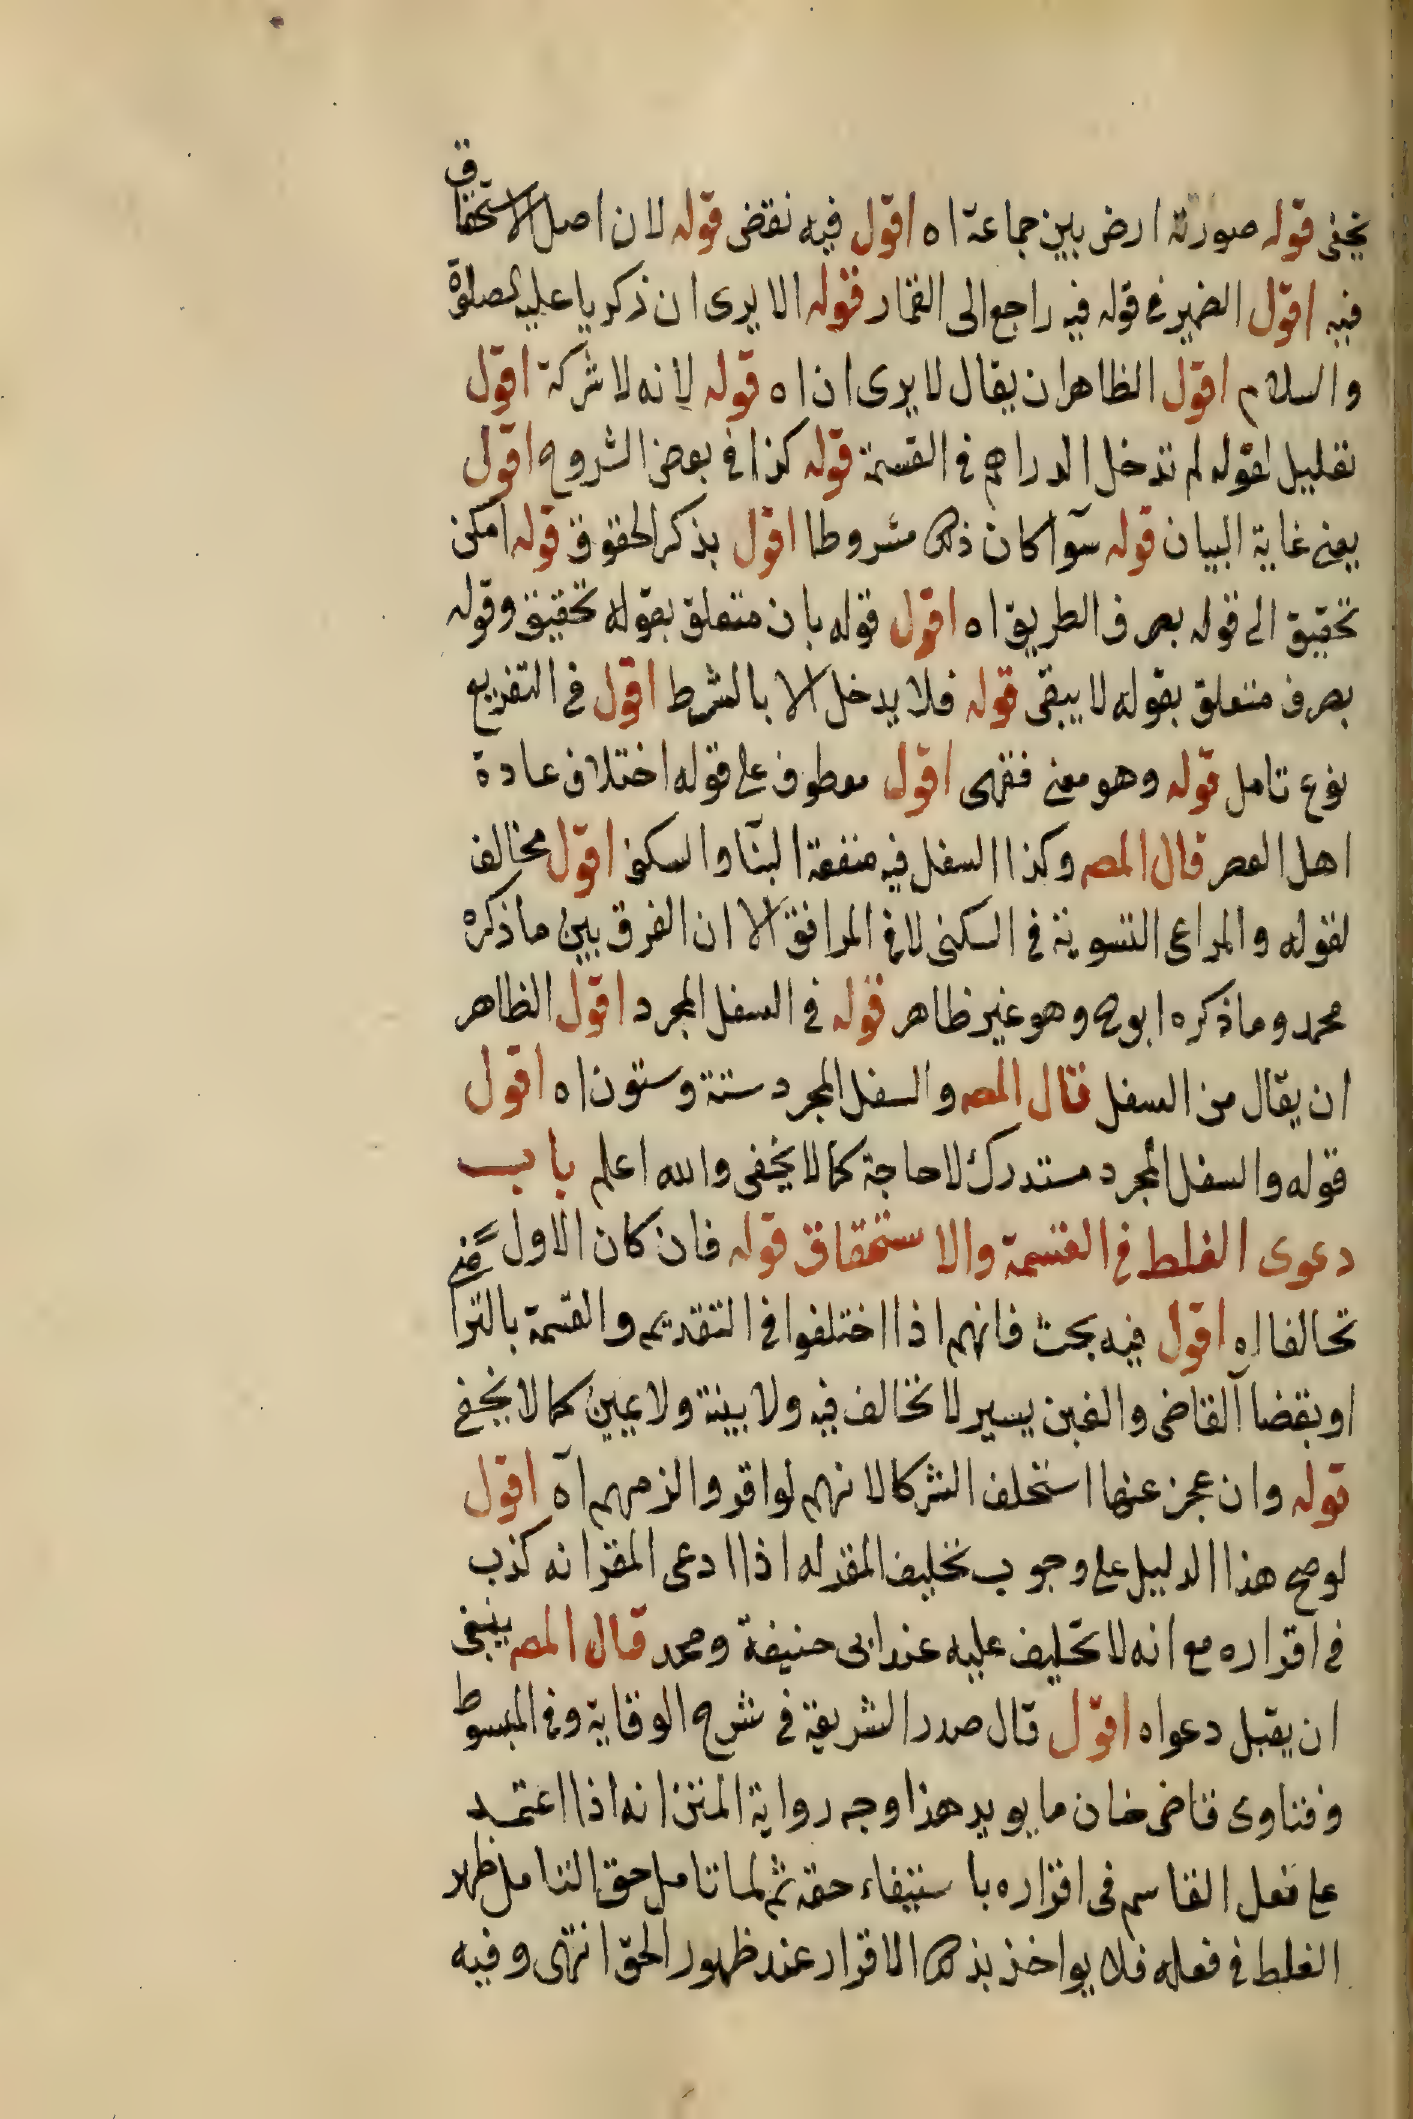 يخفى قوله صورته ارض بين جماعة اه اقول فيه نقض قوله لان اصل الاستحقاق
فيه اقول الضمير فى قوله فيه راجع الى القمار قوله الا يرى ان زكريا عليه الصلوة
والسلام اقول الظاهر ان يقال لا يرى ان اه قوله لانه لا شركة اقول
تعليل لقوله لم تدخل الدراهم فى القسمة قوله كذا فى بعض الشروح اقول
يعنى غاية البيان قوله سوآ كان ذلك مشروطا اقول بذكر الحقوق قوله امكن
تحقيق الى قوله بصرف الطريق اه اقول قوله بان متعلق بقوله تحقيق وقوله
بصرف متعلق بقوله لا يبقى قوله فلا يدخل الا بالشرط اقول فى التفريع
نوع تامل قوله وهو معنى فقهى اقول معطوف على قوله اختلاف عادة
اهل العصر قال المصـ وكذا السفل فيه منفعة البنآ والسكنى اقول مخالف
لقوله والمراعى التسوية فى السكنى لا فى المرافق الا ان الفرق بين ما ذكره
محمد وما ذكره ابو ح وهو غير ظاهر قوله فى السفل المجرد اقول الظاهر
ان يقال من السفل قال المصـ والسفل المجرد ستة وستون اه اقول
قوله والسفل المجرد مستدرك لا حاجة كما لا يخفى والله اعلم باب
دعوى الغلط فى القسمة والاستحقاق قوله فان كان الاول
تحالفا اه اقول فيه بحث فانهم اذا اختلفوا فى التقديم والقسمة بالتراضى
او بقضاآ القاضى والغبن يسير لا تحالف فيه ولا بينة ولا يمين كما لا يخفى
قوله وان عجز عنها استحلف الشركا لانهم لو اقروا لزمهم آه اقول
لو صح هذا الدليل على وجوب تحليف المقر له اذا ادعى المقر انه كذب
فى اقراره مع انه لا تحليف عليه عند ابى حنيفة ومحمد قال المصـ ينبغى
ان يقبل دعواه اقول قال صدر الشريعة فى شرح الوقاية وفى المبسوط
وفتاوى قاضى خان ما يويد هذا وجه رواية المتن انه اذا اعتمد
على فعل القاسم فى اقراره باستيفاء حقه ثم لما تامل حق التامل ظهر
الغلط فى فعله فلا يواخذ بذلك الاقرار عند ظهور الحق انتهى وفيه